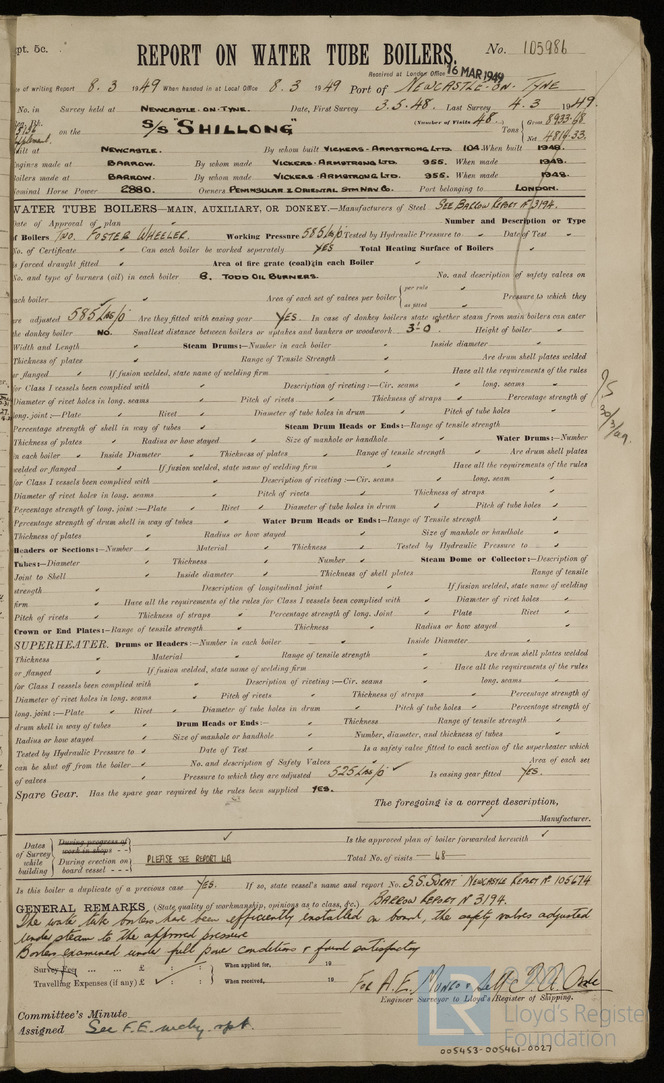 pt. 5c.
REPORT ON WATER TUBE BOILERS.
No. 105986
Received at London Office 16 MAR 1949
of writing Report 8.3 1949 When handed in at Local Office 8.3 1949 Port of NEWCASTLE-ON-TYNE
No. in Survey held at NEWCASTLE-ON-TYNE. Date, First Survey 3.5.48. Last Survey 4.3 1949.
on the S/S "SHILLONG" (Number of Visits 48) Tons Gross 8933.68 Net 4814.33
NEWCASTLE. By whom built VICKERS-ARMSTRONG LTD. 104 When built 1948.
Engines made at BARROW. By whom made VICKERS-ARMSTRONG LTD. 955. When made 1948.
Boilers made at BARROW. By whom made VICKERS-ARMSTRONG LTD. 955. When made 1948.
Nominal Horse Power 2880. Owners PENINSULAR & ORIENTAL STM NAV CO. Port belonging to LONDON.
WATER TUBE BOILERS—MAIN, AUXILIARY, OR DONKEY.—Manufacturers of Steel SEE BARROW REPORT No 3194.
Date of Approval of plan Number and Description or Type
of Boilers TWO. FOSTER WHEELER. Working Pressure 585 lbs/□" Tested by Hydraulic Pressure to Date of Test
No. of Certificate Can each boiler be worked separately YES Total Heating Surface of Boilers
Is forced draught fitted Area of fire grate (coal) in each Boiler
No. and type of burners (oil) in each boiler 6. TODD OIL BURNERS. No. and description of safety valves on
each boiler Area of each set of valves per boiler per rule as fitted Pressure to which they
are adjusted 585 Lbs/□" Are they fitted with easing gear YES. In case of donkey boilers state whether steam from main boilers can enter
the donkey boiler NO. Smallest distance between boilers or uptakes and bunkers or woodwork 3'-0" Height of boiler
Width and Length Steam Drums:—Number in each boiler Inside diameter
Thickness of plates Range of Tensile Strength Are drum shell plates welded
or flanged If fusion welded, state name of welding firm Have all the requirements of the rules
for Class I vessels been complied with Description of riveting:—Cir. seams long. seams
Diameter of rivet holes in long. seams Pitch of rivets Thickness of straps Percentage strength of
long. joint:—Plate Rivet Diameter of tube holes in drum Pitch of tube holes
Percentage strength of shell in way of tubes Steam Drum Heads or Ends:—Range of tensile strength
Thickness of plates Radius or how stayed Size of manhole or handhole Water Drums:—Number
in each boiler Inside Diameter Thickness of plates Range of tensile strength Are drum shell plates
welded or flanged If fusion welded, state name of welding firm Have all the requirements of the rules
for Class I vessels been complied with Description of riveting:—Cir. seams long. seam
Diameter of rivet holes in long. seams Pitch of rivets Thickness of straps
Percentage strength of long. joint:—Plate Rivet Diameter of tube holes in drum Pitch of tube holes
Percentage strength of drum shell in way of tubes Water Drum Heads or Ends:—Range of Tensile strength
Thickness of plates Radius or how stayed Size of manhole or handhole
Headers or Sections:—Number Material Thickness Tested by Hydraulic Pressure to
Tubes:—Diameter Thickness Number Steam Dome or Collector:—Description of
Joint to Shell Inside diameter Thickness of shell plates Range of tensile
strength Description of longitudinal joint If fusion welded, state name of welding
firm Have all the requirements of the rules for Class I vessels been complied with Diameter of rivet holes
Pitch of rivets Thickness of straps Percentage strength of long. Joint Plate Rivet
Crown or End Plates:—Range of tensile strength Thickness Radius or how stayed
SUPERHEATER. Drums or Headers:—Number in each boiler Inside Diameter
Thickness Material Range of tensile strength Are drum shell plates welded
or flanged If fusion welded, state name of welding firm Have all the requirements of the rules
for Class I vessels been complied with Description of riveting:—Cir. seams long. seams
Diameter of rivet holes in long. seams Pitch of rivets Thickness of straps Percentage strength of
long. joint:—Plate Rivet Diameter of tube holes in drum Pitch of tube holes Percentage strength of
drum shell in way of tubes Drum Heads or Ends:— Thickness Range of tensile strength
Radius or how stayed Size of manhole or handhole Number, diameter, and thickness of tubes
Tested by Hydraulic Pressure to Date of Test Is a safety valve fitted to each section of the superheater which
can be shut off from the boiler No. and description of Safety Valves Area of each set
of valves Pressure to which they are adjusted 525 Lbs/□" Is easing gear fitted YES.
Spare Gear. Has the spare gear required by the rules been supplied YES.
The foregoing is a correct description,
Manufacturer.
Dates of Survey while building During progress of work in shops - - During erection on board vessel - - - PLEASE SEE REPORT 4A
Is the approved plan of boiler forwarded herewith
Total No. of visits 48
Is this boiler a duplicate of a previous case YES. If so, state vessel's name and report No. S.S. SURAT NEWCASTLE REPORT No 105674
BARROW REPORT No 3194.
GENERAL REMARKS. (State quality of workmanship, opinions as to class, &c.)
The water tube boilers have been efficiently installed on board, the safety valves adjusted
under steam to the approved pressure
Boilers examined under full power conditions & found satisfactory
Survey Fee ... ... £ : : When applied for, 19
Travelling Expenses (if any) £ : : When received, 19
For A. E. Munro & Self
Engineer Surveyor to Lloyd's Register of Shipping.
Committee's Minute
Assigned See F.E. mchy. rpt.
LR
Lloyd's Register
Foundation
005453-005461-0027